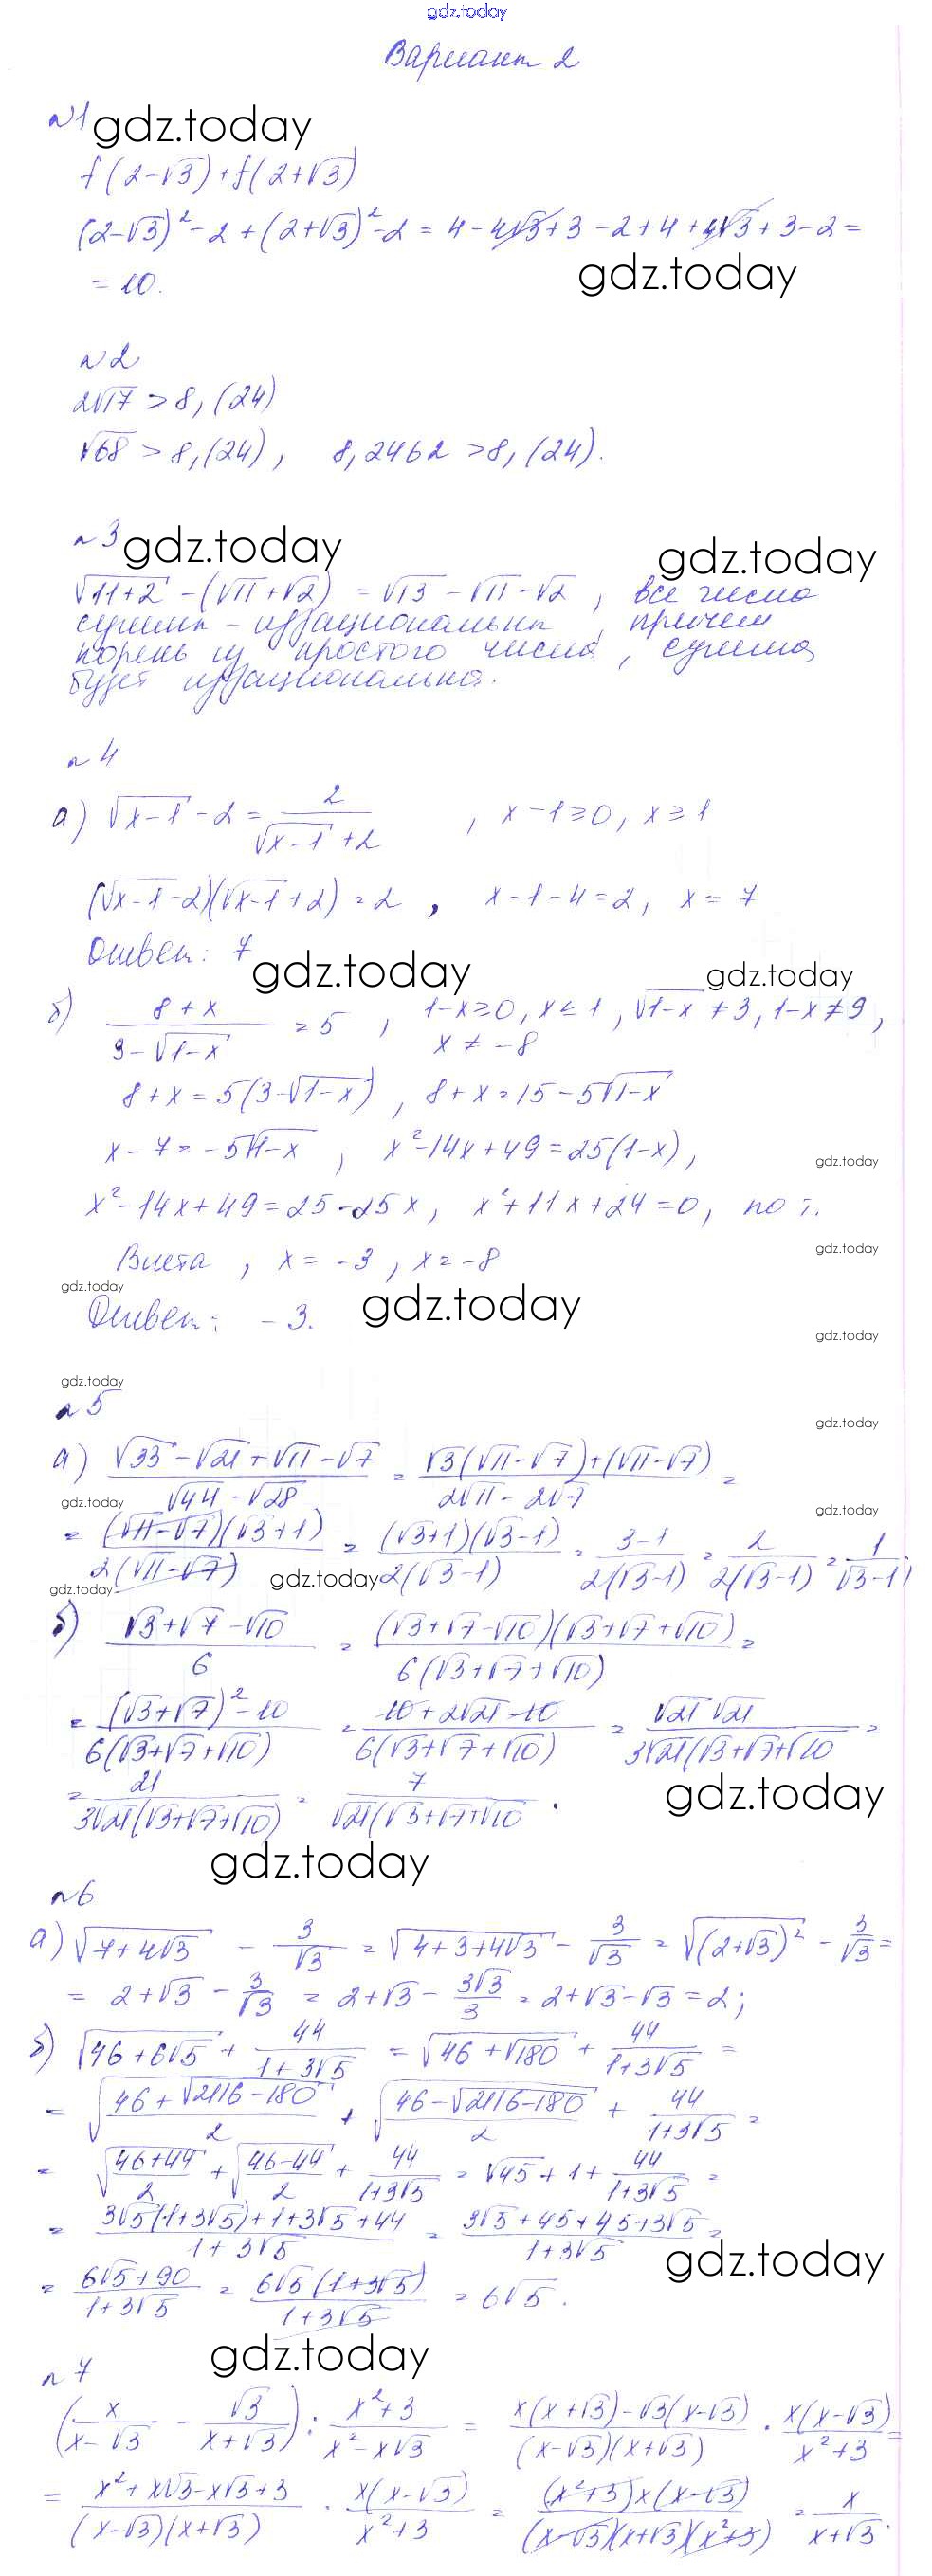 gdz.today
Вариант 2
№1 gdz.today
f(2-√3)+f(2+√3)
(2-√3)²-2+(2+√3)²-2 = 4-4√3+3-2+4+4√3+3-2 =
gdz.today
= 10.
№2
2√17 > 8,(24)
√68 > 8,(24), 8,2462 > 8,(24).
№3 gdz.today gdz.today
√11+2 - (√11+√2) = √13 - √11 - √2, все числа
суммы - иррациональны, причем
корень из простого числа, сумма
будет иррациональна.
№4
а) √(x-1) - 2 = 2/(√(x-1)+2), x-1≥0, x≥1
(√(x-1)-2)(√(x-1)+2) = 2, x-1-4=2, x=7
Ответ: 7
gdz.today gdz.today
б) (8+x)/(3-√(1-x)) = 5, 1-x≥0, x≤1, √(1-x) ≠ 3, 1-x≠9,
x ≠ -8
8+x = 5(3-√(1-x)), 8+x=15-5√(1-x)
x-7 = -5√(1-x), x²-14x+49=25(1-x),
gdz.today
x²-14x+49=25-25x, x²+11x+24=0, по т.
gdz.today
Виета, x = -3, x = -8
gdz.today
Ответ: -3. gdz.today
gdz.today
gdz.today
№5
gdz.today
а) (√33-√21+√11-√7)/(√44-√28) = (√3(√11-√7)+(√11-√7))/(2√11-2√7) =
gdz.today gdz.today
= ((√11-√7)(√3+1))/(2(√11-√7)) = ((√3+1)(√3-1))/(2(√3-1)) = (3-1)/(2(√3-1)) = 2/(2(√3-1)) = 1/(√3-1);
gdz.today gdz.today
б) (√3+√7-√10)/6 = ((√3+√7-√10)(√3+√7+√10))/(6(√3+√7+√10)) =
= ((√3+√7)²-10)/(6(√3+√7+√10)) = (10+2√21-10)/(6(√3+√7+√10)) = (√21 √21)/(3√21(√3+√7+√10 =
= 21/(3√21(√3+√7+√10)) = 7/(√21(√3+√7+√10 .
gdz.today
gdz.today
№6
а) √(7+4√3) - 3/√3 = √(4+3+4√3) - 3/√3 = √((2+√3)²) - 3/√3 =
= 2+√3 - 3/√3 = 2+√3 - 3√3/3 = 2+√3-√3 = 2;
б) √(46+6√5) + 44/(1+3√5) = √(46+√180) + 44/(1+3√5) =
= √((46+√(2116-180))/2) + √((46-√(2116-180))/2) + 44/(1+3√5) =
= √((46+44)/2) + √((46-44)/2) + 44/(1+3√5) = √45+1+44/(1+3√5) =
= (3√5(1+3√5)+1+3√5+44)/(1+3√5) = (3√5+45+45+3√5)/(1+3√5) =
gdz.today
= (6√5+90)/(1+3√5) = (6√5(1+3√5))/(1+3√5) = 6√5.
gdz.today
№7
(x/(x-√3) - √3/(x+√3)) : (x²+3)/(x²-x√3) = (x(x+√3)-√3(x-√3))/((x-√3)(x+√3)) · (x(x-√3))/(x²+3) =
= (x²+x√3-x√3+3)/((x-√3)(x+√3)) · (x(x-√3))/(x²+3) = ((x²+3)x(x-√3))/((x-√3)(x+√3)(x²+3)) = x/(x+√3).